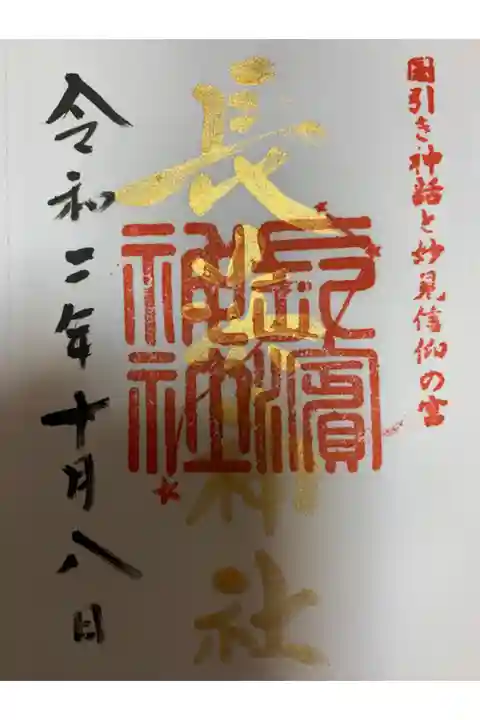 國引き神話と妙見信仰の宮
長浜神社
長濱神社
令和二年十月八日